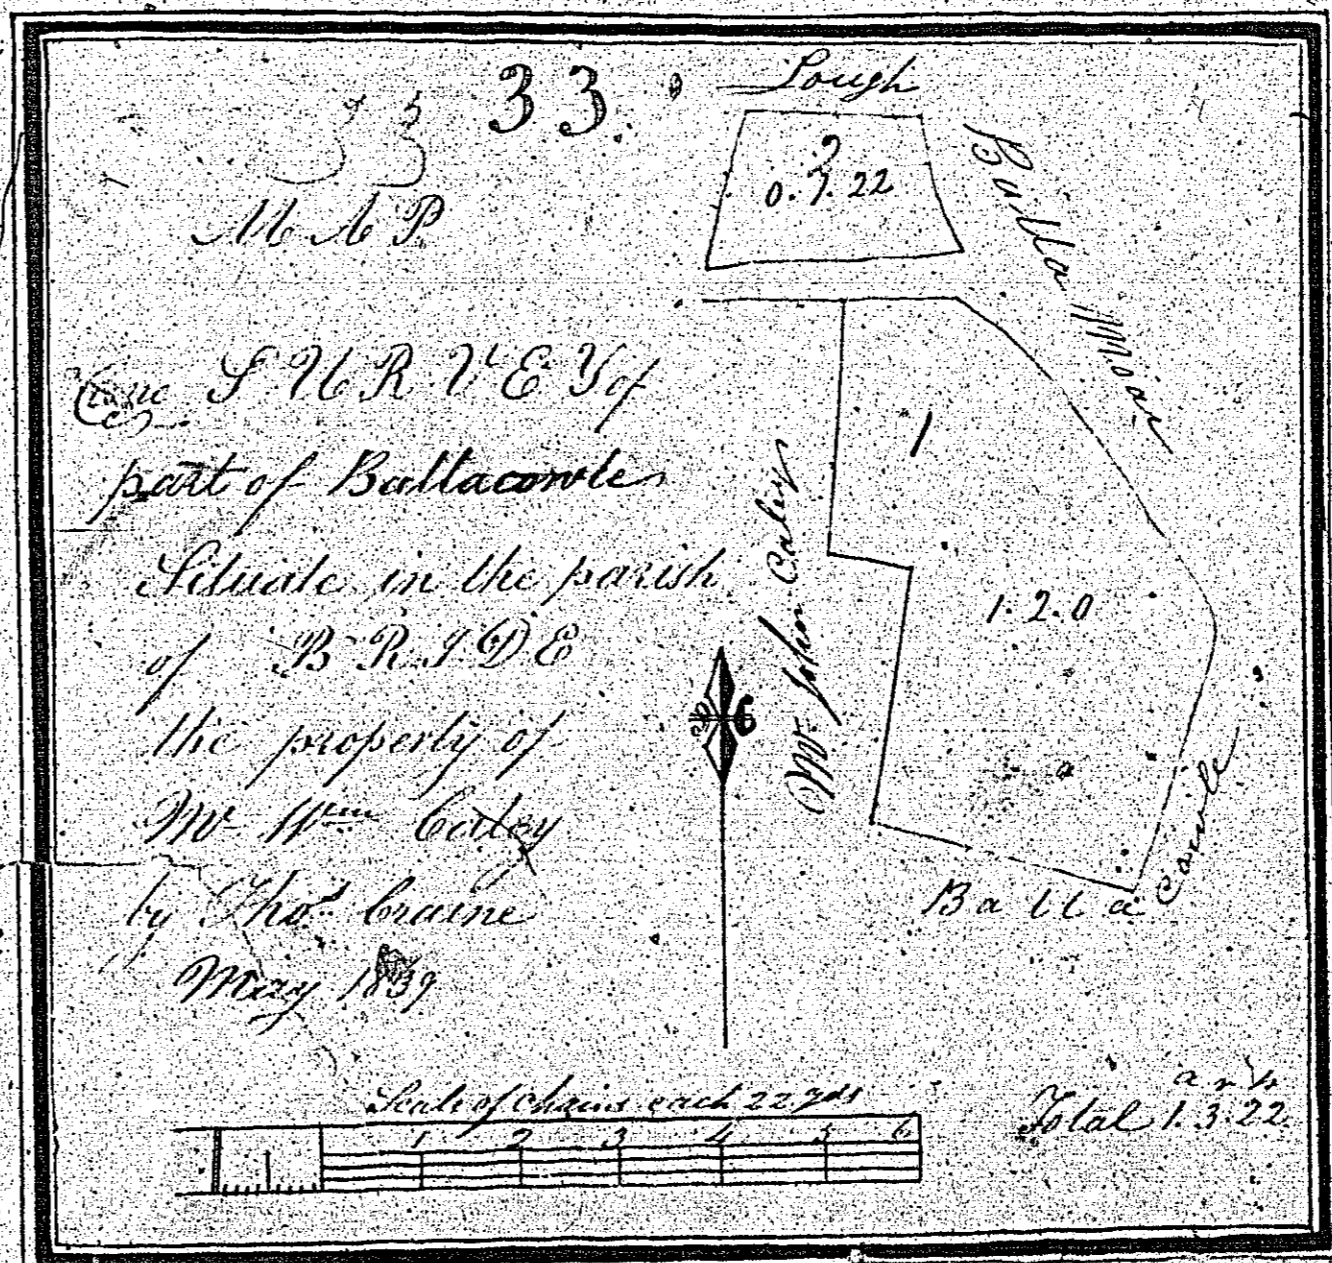 33.
33
MAP
and SURVEY of
part of Ballacowle
Situate in the parish
of BRIDE
the property of
Mr Wm Caley
by Thos. Craine
May 1839
Lough
2
0.1.22
Balla Moar
1
1.2.0
Mr John Caley
Balla Cowle
Scale of chains each 22 yds
1 2 3 4 5 6
a r p
Total 1.3.22